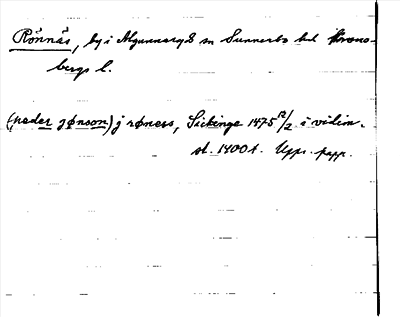 Rönnäs, by i Agunnaryds sn Sunnerbo hd Krono-
bergs l.
(peder jønson) j røness, Sickinge 1475 12/2 i vidim.
st. 1400t. Upps. papp.